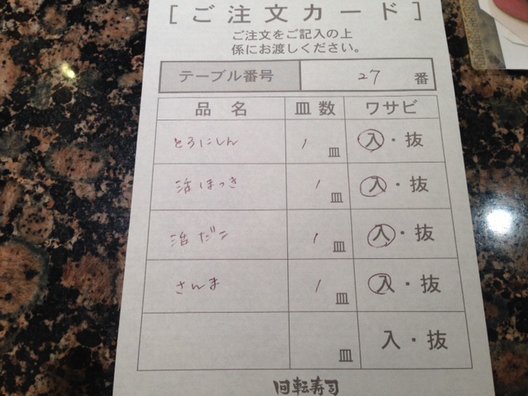 [ご注文カード]
ご注文をご記入の上
係にお渡しください。
テーブル番号 27 番
品名 皿数 ワサビ
とろにしん 1 皿 入・抜
活ほっき 1 皿 入・抜
活だこ 1 皿 入・抜
さんま 1 皿 入・抜
皿 入・抜
回転寿司